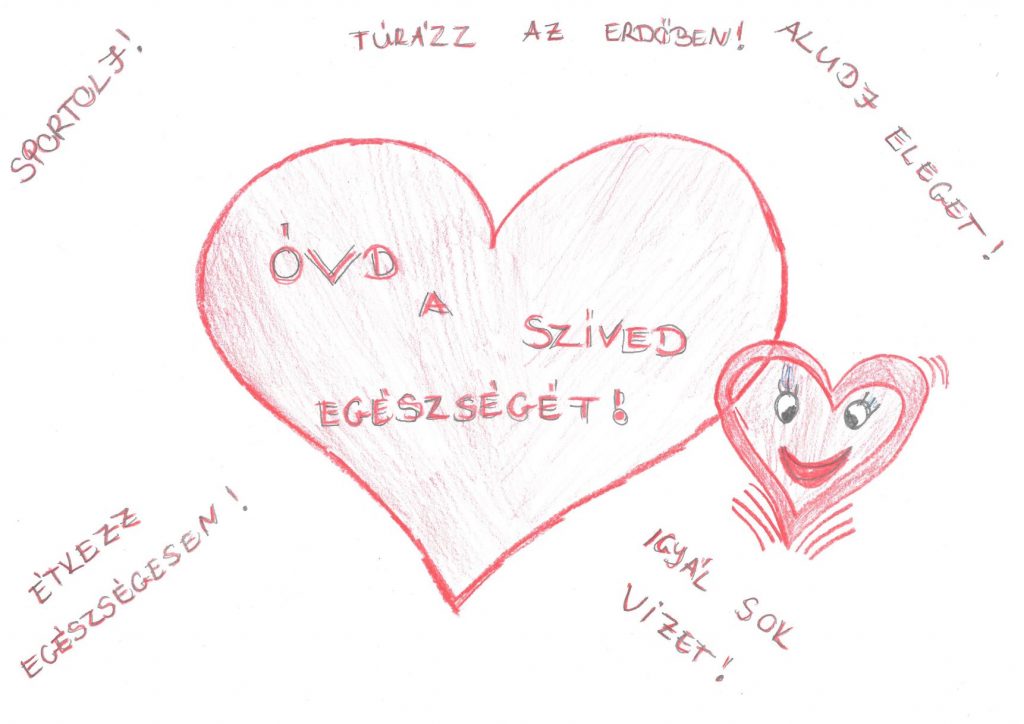 SPORTOLJ!
TÚRÁZZ AZ ERDŐBEN!
ALUDJ ELEGET!
ÓVD
A
SZÍVED
EGÉSZSÉGÉT!
ÉTKEZZ
EGÉSZSÉGESEN!
IGYÁL SOK
VIZET!